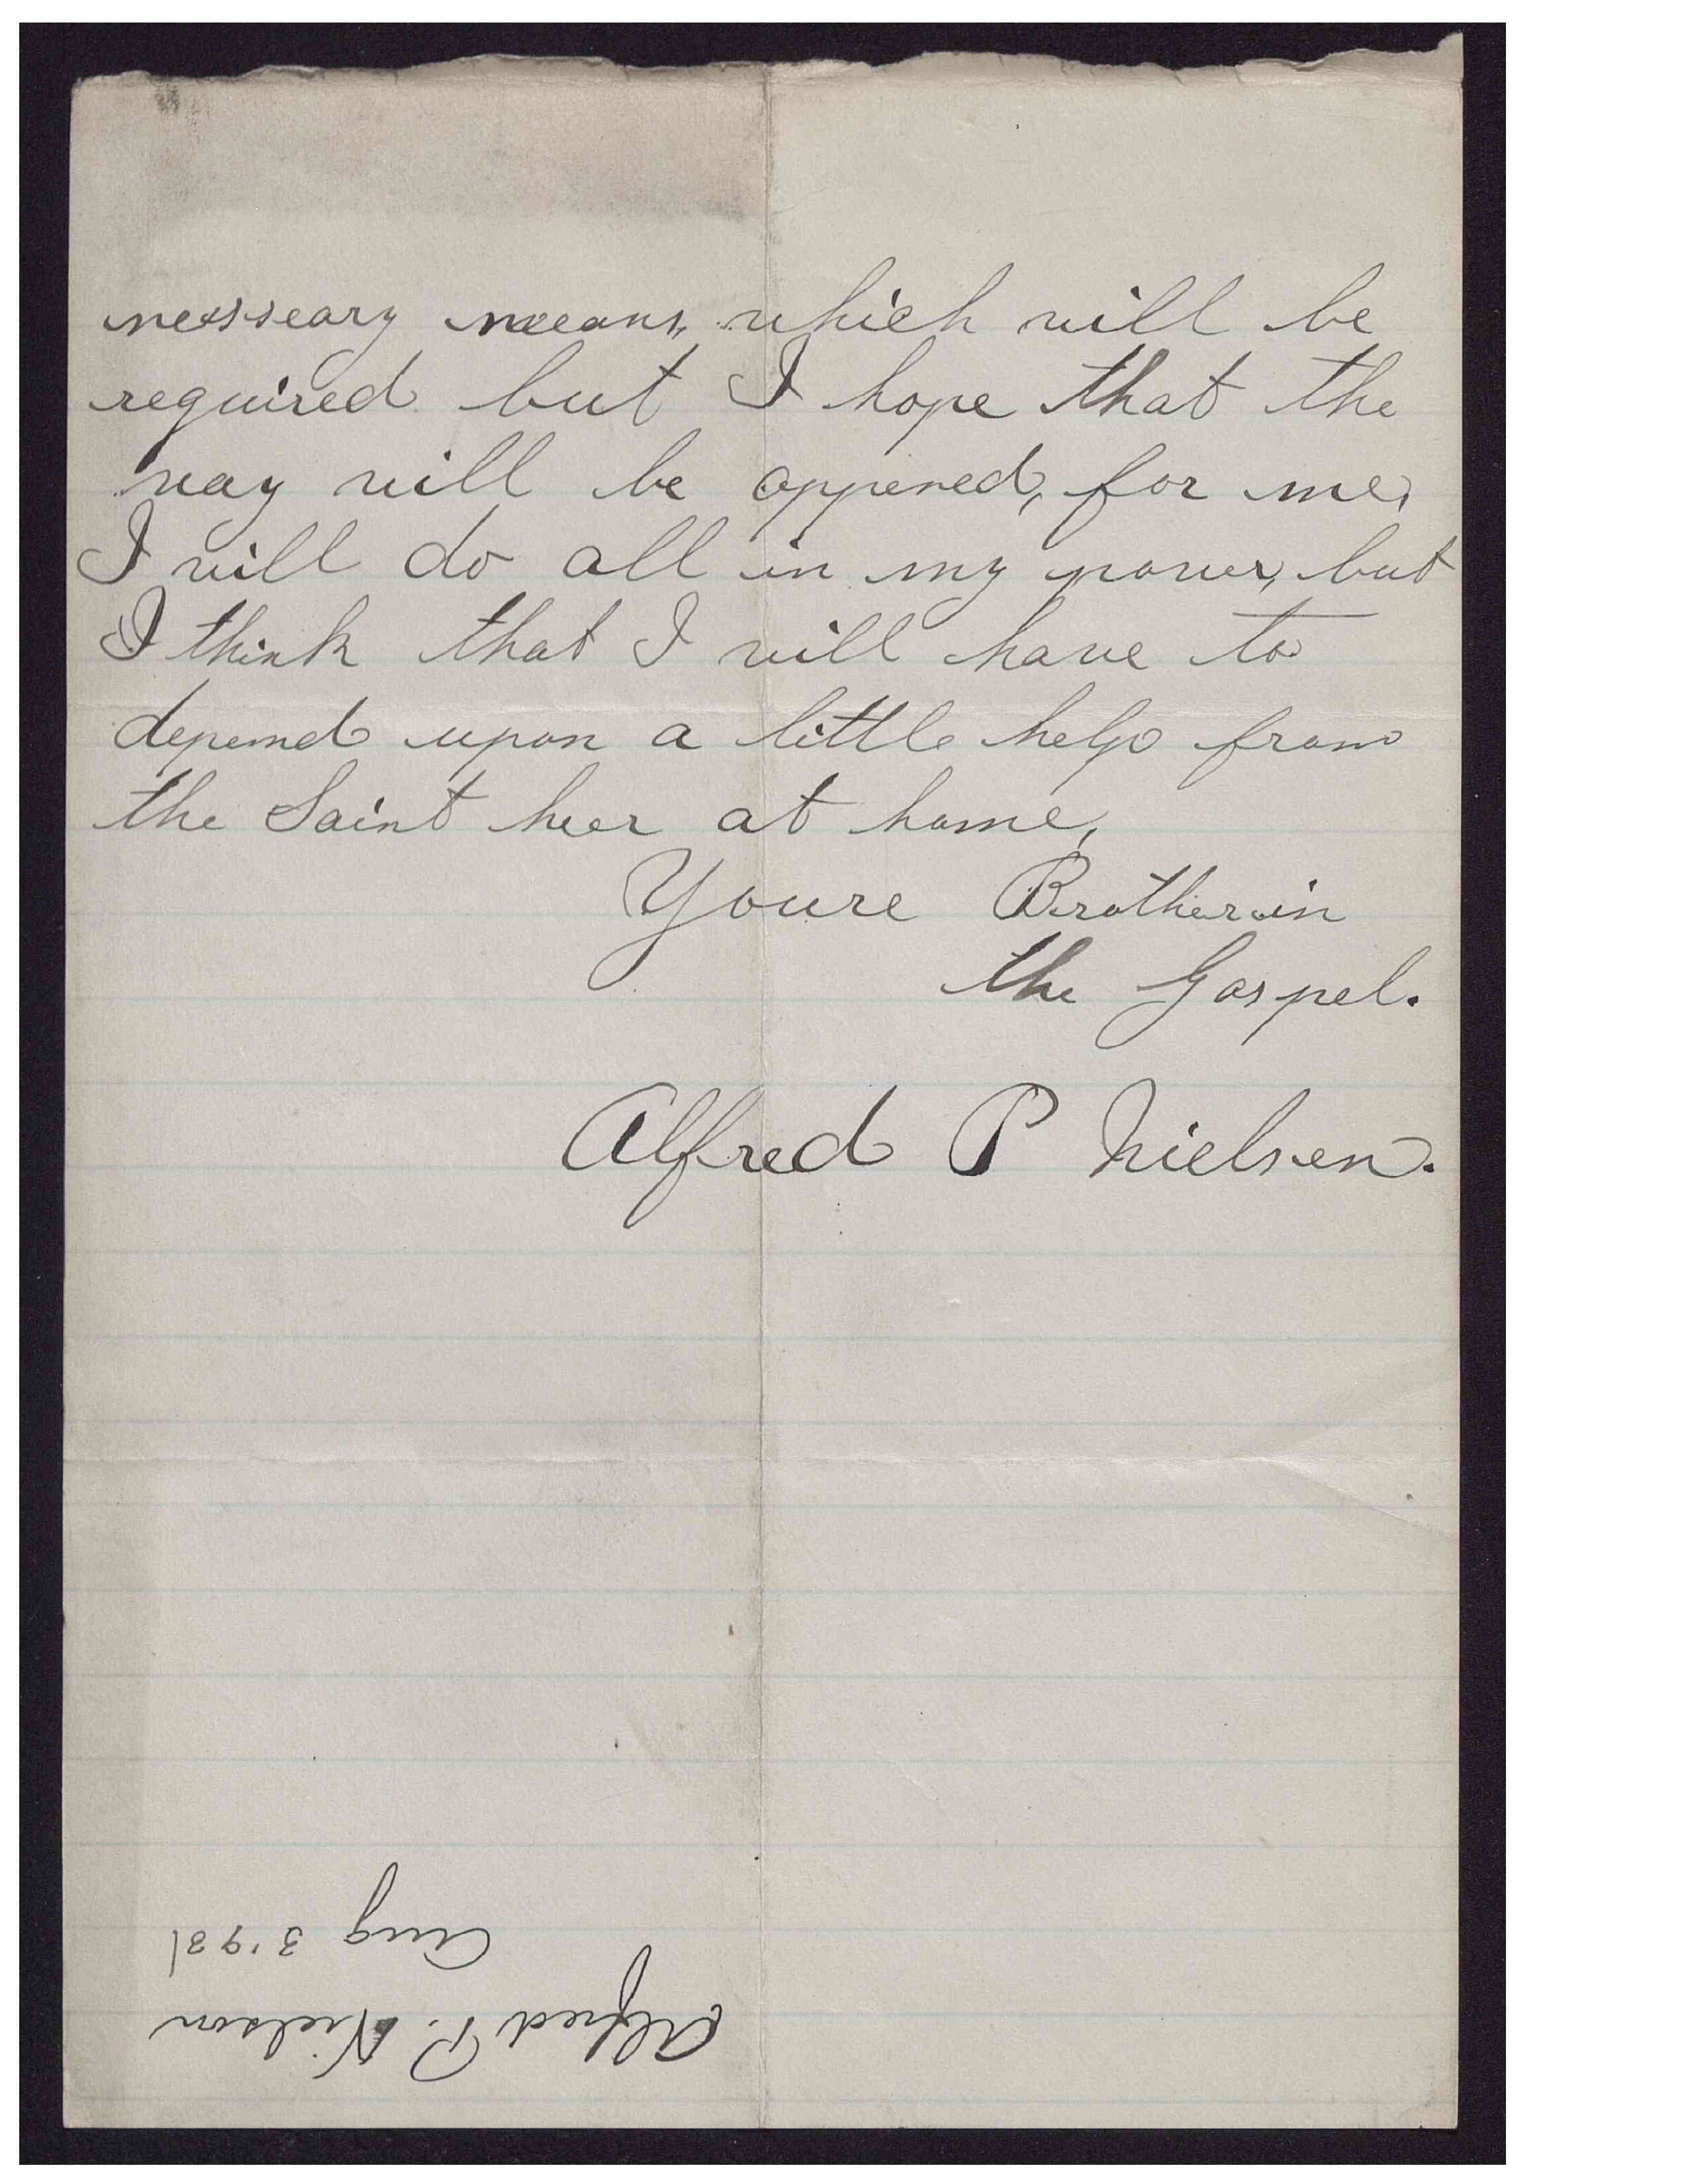 nessseary means, which will be
required but I hope that the
way will be oppened, for me,
I will do all in my power, but
I think that I will have to
depend upon a little help from
the Saint heer at home,
Youre Brother in
the Gospel.
Alfred P Nielsen.
Alfred P. Nielson
Aug 3 '98